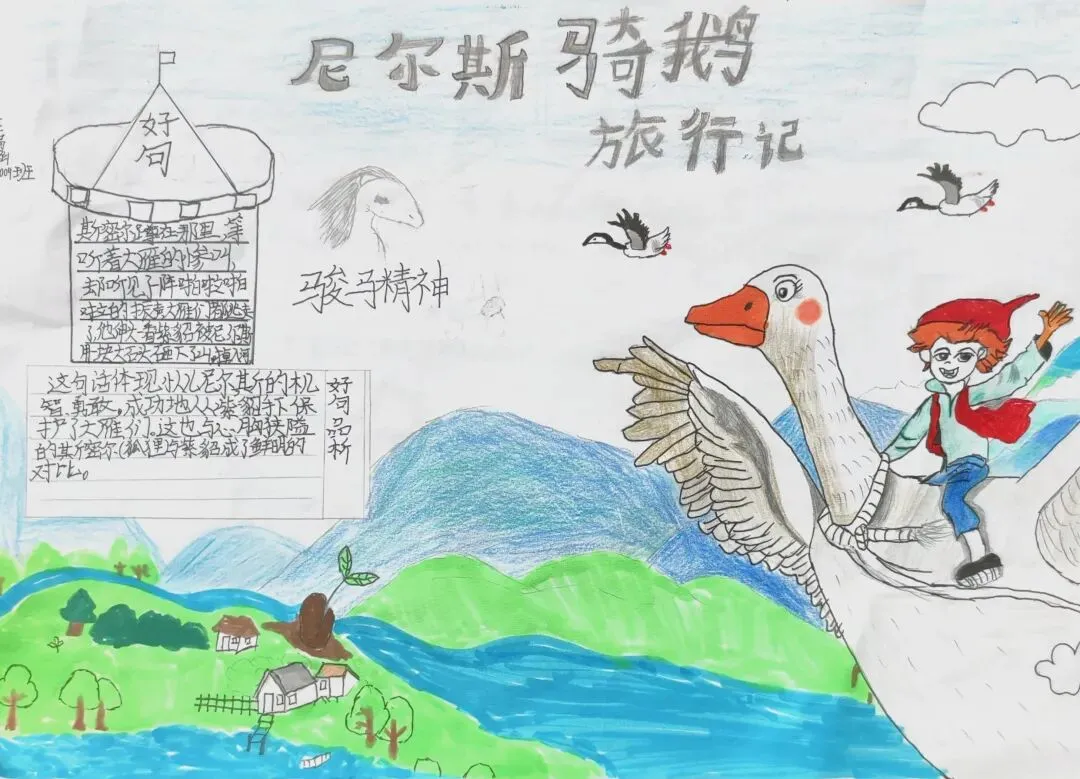 尼尔斯骑鹅
旅行记
好
句
斯密尔蹲在那里,等
听着大雁的惨叫,
却听见了阵啪啦啪
啦的扶大雁们都逃走
了他
骏马精神
这句话体现小人儿尼尔斯的机
智、勇敢,成功地从紫貂手下保
护了大雁们,这也与心胸狭隘
的斯密尔(狐狸与紫貂成了鲜明的
对比。
好句品析